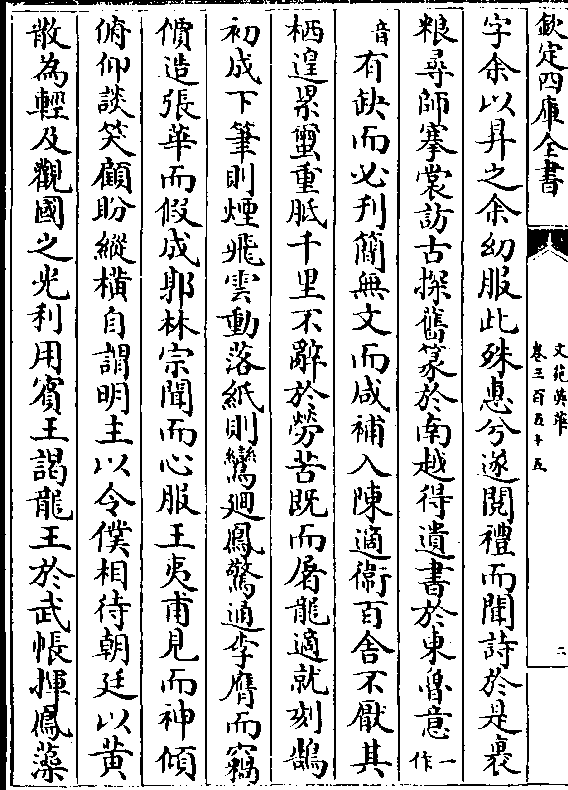 欽定四庫全書
文苑英華
卷三百五十五
二
字余以昇之余幼服此殊惠兮遂閱禮而聞詩於是裹
粮尋師搴裳訪古探舊篆於南越得遺書於東魯意一作
音有缺而必刋簡無文而咸補入陳適衛百舍不厭其
栖遑累蠒重胝千里不辭於勞苦既而屠龍適就刻鵠
初成下筆則煙飛雲動落紙則鸞廻鳳驚通李膺而竊
價造張華而假成郭林宗聞而心服王夷甫見而神傾
俯仰談笑顧盼縱横自謂明主以令僕相待朝廷以黄
散為輕及觀國之光利用賓王謁龍王於武帳揮鳳藻